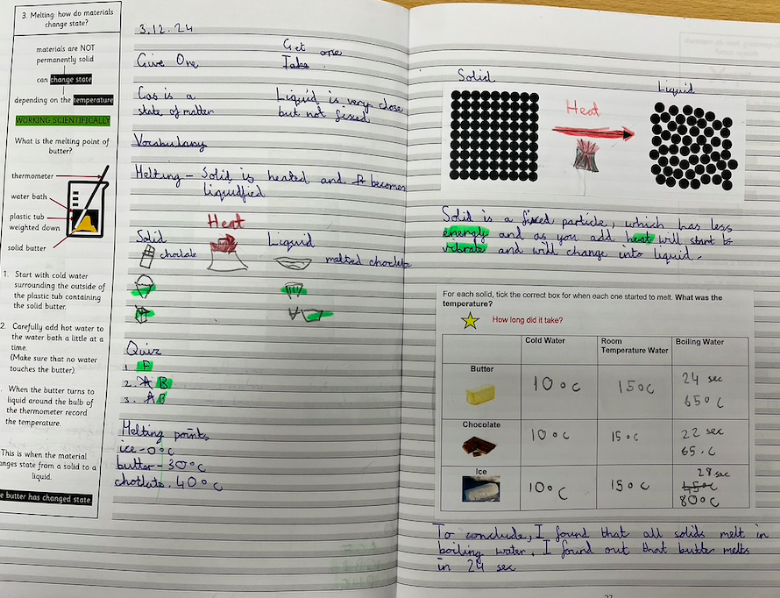 3. Melting: how do materials
change state?
materials are NOT
permanently solid
can change state
depending on the temperature
WORKING SCIENTIFICALLY
What is the melting point of
butter?
thermometer
water bath
plastic tub
weighted down
solid butter
1. Start with cold water
surrounding the outside of
the plastic tub containing
the solid butter.
2. Carefully add hot water to
the water bath a little at a
time.
(Make sure that no water
touches the butter)
When the butter turns to
liquid around the bulb of
the thermometer record
the temperature.
This is when the material
nges state from a solid to a
liquid.
e butter has changed state
3.12.24
Give One
Get one
Take
Gas is a
state of matter
Liquid is very close
but not fixed
Vocabulary
Melting - Solid is heated and it becomes
liquidfied
Solid
Heat
Liquid
choclate
melted choclate
Quiz
1. B
2. A B
3. A B
Melting points
ice - 0°c
butter - 30°c
choclate. 40°c
Solid
Heat
Liquid
Solid is a fixed particle, which has less
energy and as you add heat will start to
vibrate and will change into liquid.
For each solid, tick the correct box for when each one started to melt. What was the
temperature?
How long did it take?
Cold Water
Room
Temperature Water
Boiling Water
Butter
10°c
15°c
24 sec
65°c
Chocolate
10°c
15°c
22 sec
65°c
Ice
10°c
15°c
28 sec
45°c
80°c
To conclude, I found that all solids melt in
boiling water. I found out that butter melts
in 24 sec